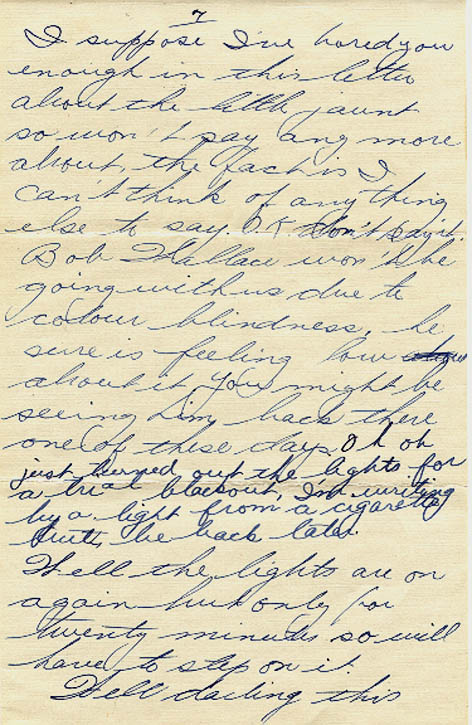 7
I suppose I've bored you
enough in this letter
about the little jaunt
so won't say any more
about, the fact is I
can't think of anything
else to say. O.K. don't say it.
Bob Wallace won't be
going with us due to
colour blindness, he
sure is feeling low
about it. You might be
seeing him back there
one of these days. Oh oh
just turned out the lights for
a trial blackout, I'm writing
by a light from a cigarette
butt, be back later.
Well the lights are on
again but only for
twenty minutes so will
have to step on it.
Well darling this